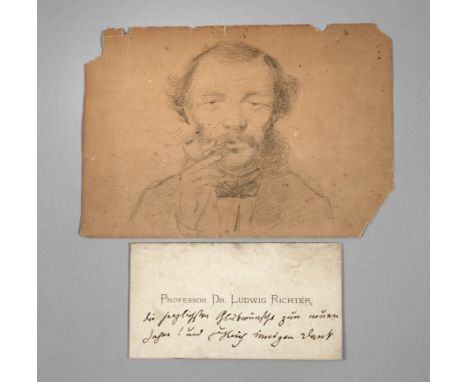 PROFESSOR DR. LUDWIG RICHTER,
die herzlichsten Glückwünsche zum neuen
Jahre! und zugleich innigen Dank